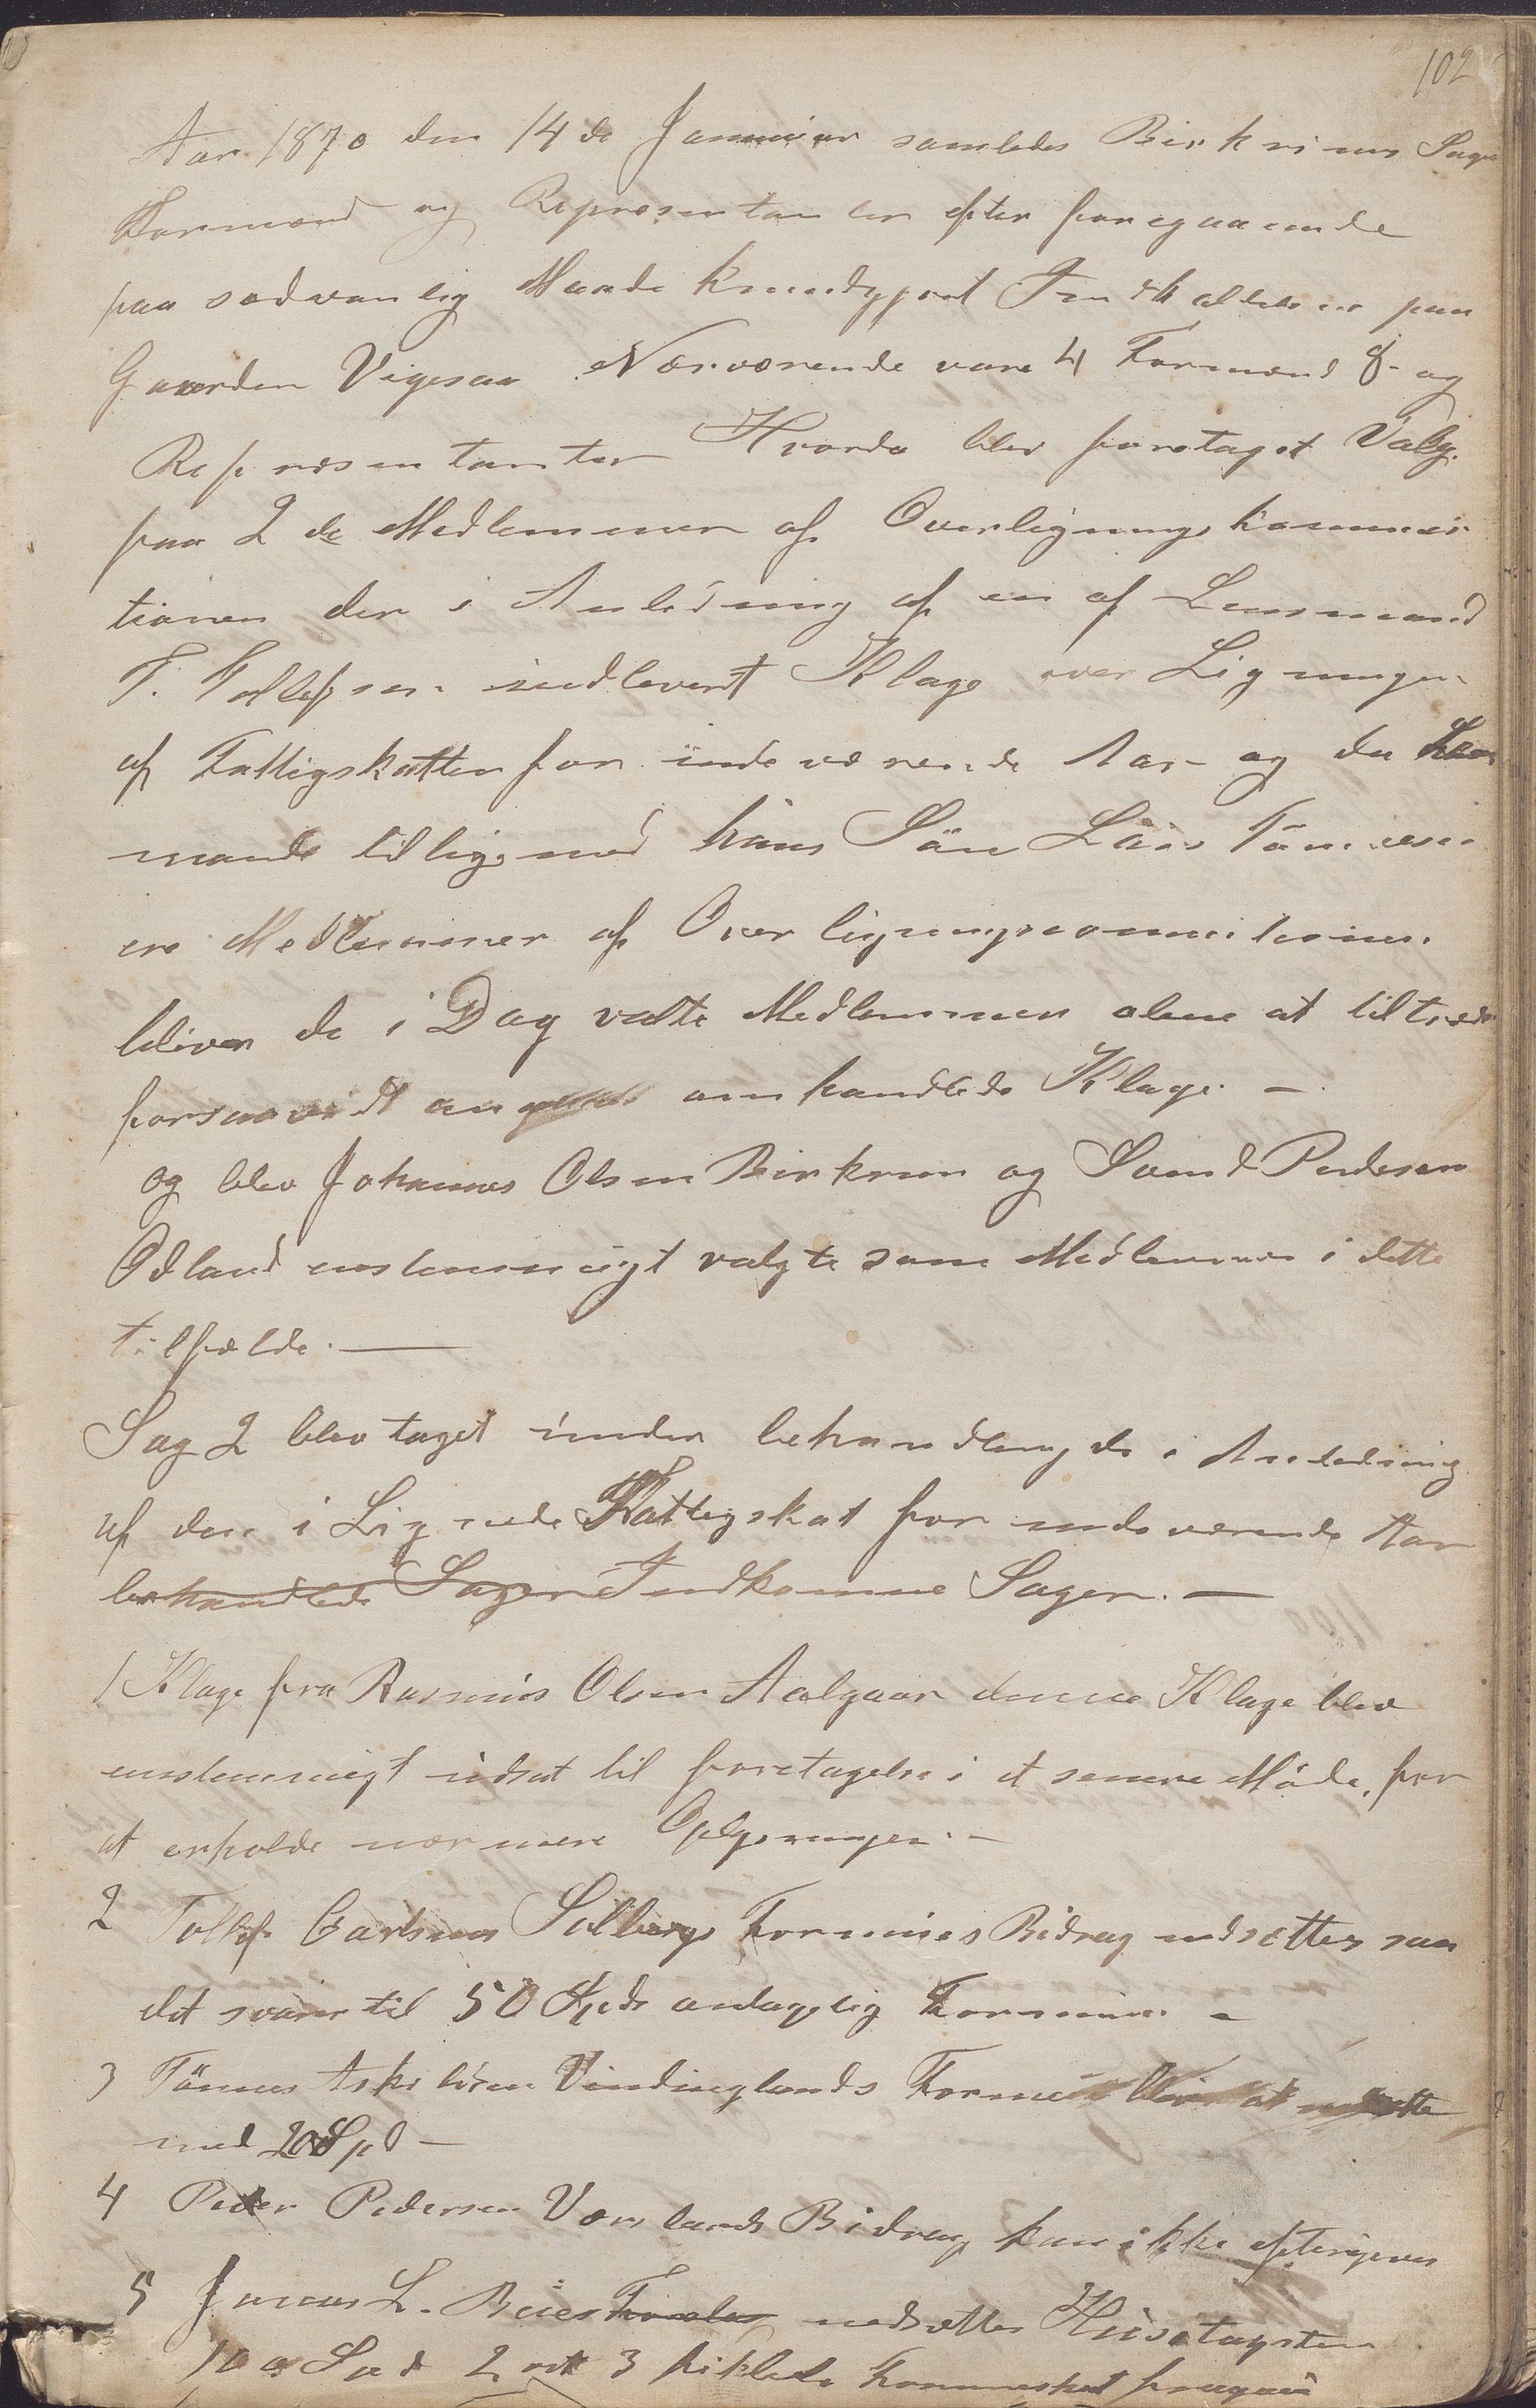 102
Aar 1870 den 14de Januar samledes Birkrims Sogns
Formænd og Repræsentanter efter foregaaende
paa sædvanlig Maade kundgjort Indkaldelse paa
Gaarden Vigesaa Nærværende vare 4 Formænd 8 og
Repræsentanter Hvorda blev foretaget Valg
paa 2de Medlemmer af Overligningskommis
tionen der i Anledning af en af Lensmand
T. Tollefsen indleveret Klage over Ligningen
af Fattigskatten for indeværende Aar og da Lens
mand tilligemed hans Sön Lars Tönnesen
ere Medlemmer af Overligningscommitionen
bliver de i Dag valte Medlemmer alene at tiltræde
forsaavidt omhandlede Klage. —
og blev Johannes Olsen Birkrem og Svend Pedersen
Ødland enstemmigt valgte som Medlemmer i dette
tilfælde. —
Sag 2 blev taget under behandling de i Anledning
af den i Lignede Fattigskat for indeværende Aar
behandlede Sager Indkomne Sager. —
1 Klage fra Rasmus Olsen Aalgaar denne Klage blev
enstemmigt udsat til foretagelse i et senere Möde, for
at erholde nærmere Oplysninger. —
2 Tollef Carlsens Solbergs Formues Bidrag nedsættes saa
det svarer til 50 Spd antagelig Formue —
3 Tönnes Askildsen Vindinglands Formue
med 20 Spd —
4 Peder Pedersen Bidrag kan ikke eftergives
5 Jonas L. nedsættes Huustagsten
100 Spd 2 ort 3